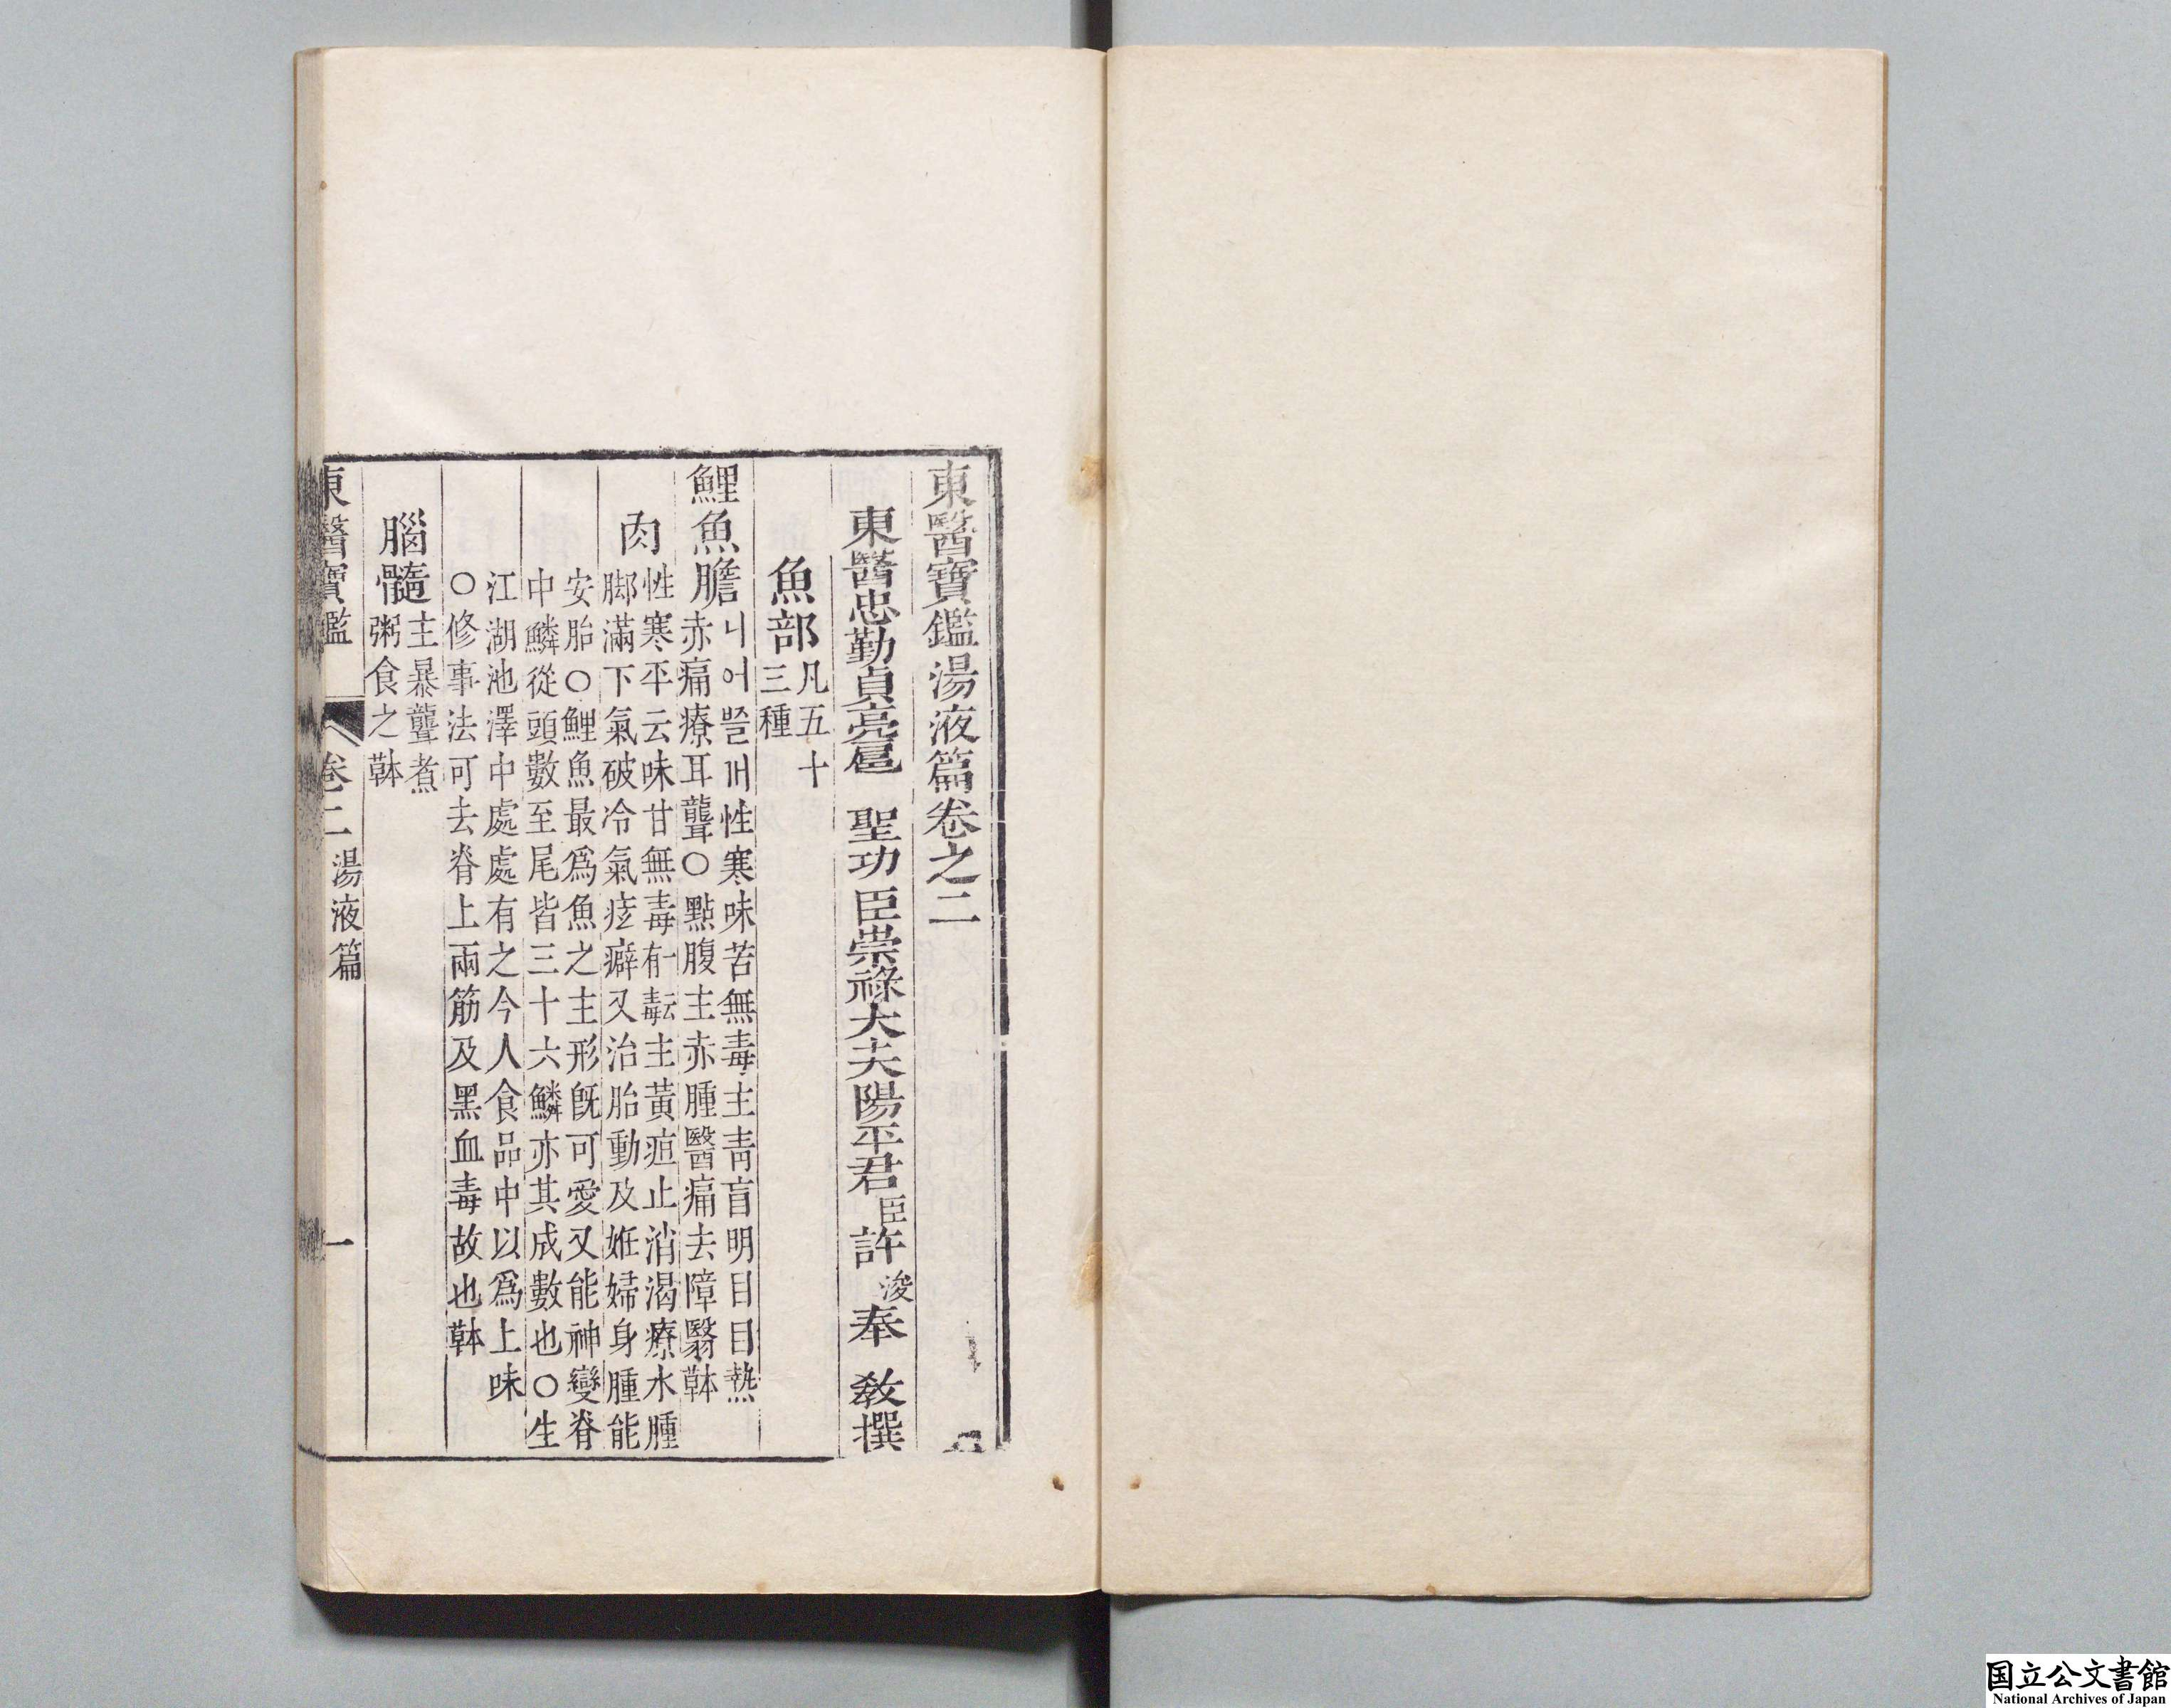 東醫寶鑑湯液篇卷之二
東醫忠勤貞亮扈 聖功臣崇祿大夫陽平君臣許浚奉 敎撰
魚部凡五十
三種
鯉魚膽니어 性寒味苦無毒主靑盲明目目熱
赤痛療耳聾○點腹主赤腫醫痛去障翳
肉性寒平云味甘無毒 主黃疸止消渴療水腫
脚滿下氣破冷氣痃癖又治胎動及姙婦身腫能
安胎○鯉魚最爲魚之主形旣可愛又能神變脊
中鱗從頭數至尾皆三十六鱗亦其成數也○生
江湖池澤中處處有之今人食品中以爲上味
○修事法可去脊上兩筋及黑血毒故也
腦髓主暴聾煮
粥食之
東醫寶鑑 卷二 湯液篇 一
国立公文書館
National Archives of Japan